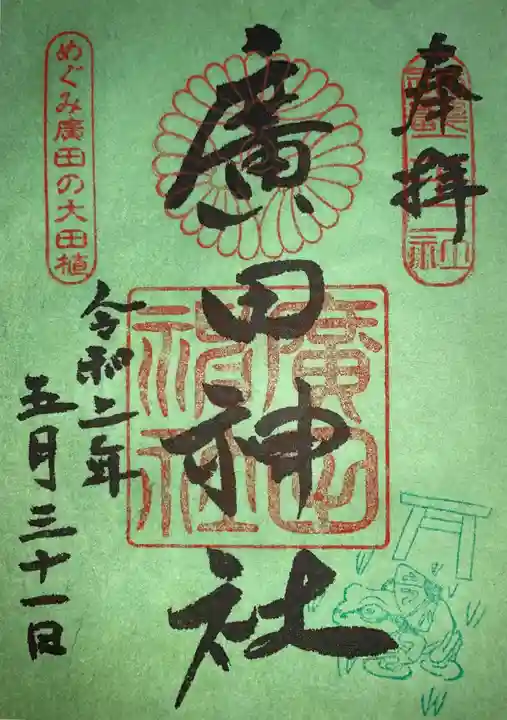 奉拝
廣田神社
廣田神社
令和二年
五月三十一日
めぐみ廣田の大田植